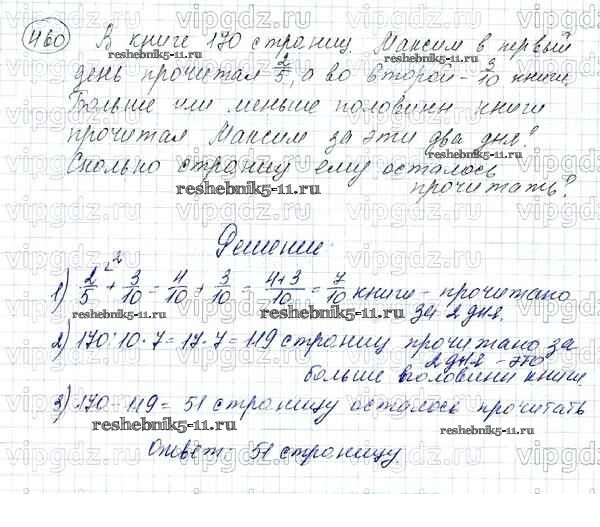 460 В книге 170 страниц. Максим в первый
день прочитал 2/5, а во второй - 3/10 книги.
Больше или меньше половины книги
прочитал Максим за эти два дня?
Сколько страниц ему осталось
прочитать?
Решение:
1) 2/5 + 3/10 = 4/10 + 3/10 = 4+3/10 = 7/10 книги - прочитано
за 2 дня.
2) 170 : 10 · 7 = 17 · 7 = 119 страниц прочитано за
2 дня - это
больше половины книги
3) 170 - 119 = 51 страницу осталось прочитать
Ответ: 51 страницу.
reshebnik5-11.ru
vipgdz.ru